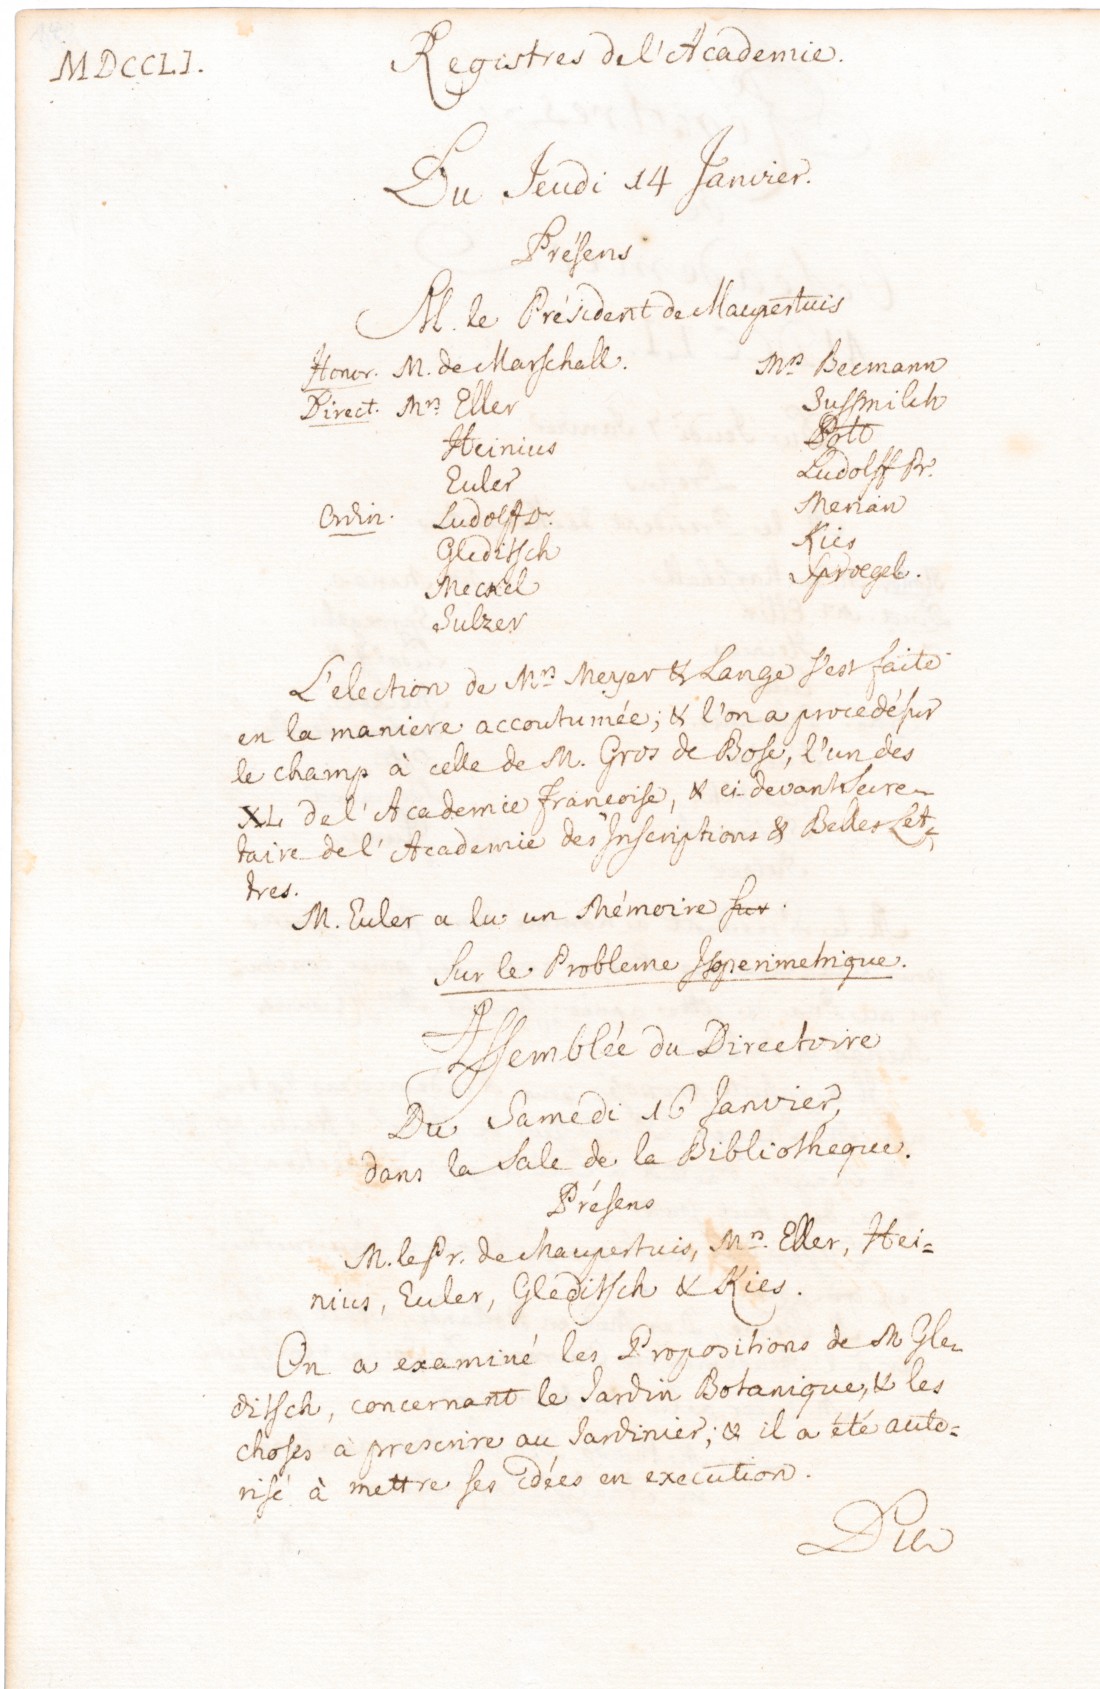 MDCCLI.
Registres de l'Academie.
Du Jeudi 14 Janvier.
Présens
M. le Président de Maupertuis
Honor. M. de Marschall.
Direct. Mrs Eller
Heinius
Euler
Ordin. Ludolff Dr.
Gleditsch
Meckel
Sulzer
Mrs Becmann
Sussmilch
Pott
Ludolff Pr.
Merian
Kies
Sproegel.
L'election de Mrs Meyer & Lange s'est faite
en la maniere accoutumée; & l'on a procedé sur
le champ à celle de M. Gros de Bose, l'un des
XL de l'Academie françoise, & ci-devant Secre-
taire de l'Academie des Inscriptions & Belles Let-
tres.
M. Euler a lu un Mémoire sur.
Sur le Probleme Isoperimetrique.
Assemblée du Directoire
Du Samedi 16 Janvier,
dans la Sale de la Bibliotheque.
Présens
M. le Pr. de Maupertuis, Mrs. Eller, Hei=
nius, Euler, Gleditsch & Kies.
On a examiné les Propositions de M Gle-
ditsch, concernant le Jardin Botanique, & les
choses à prescrire au Jardinier; & il a été auto=
risé à mettre ses idées en execution.
Du